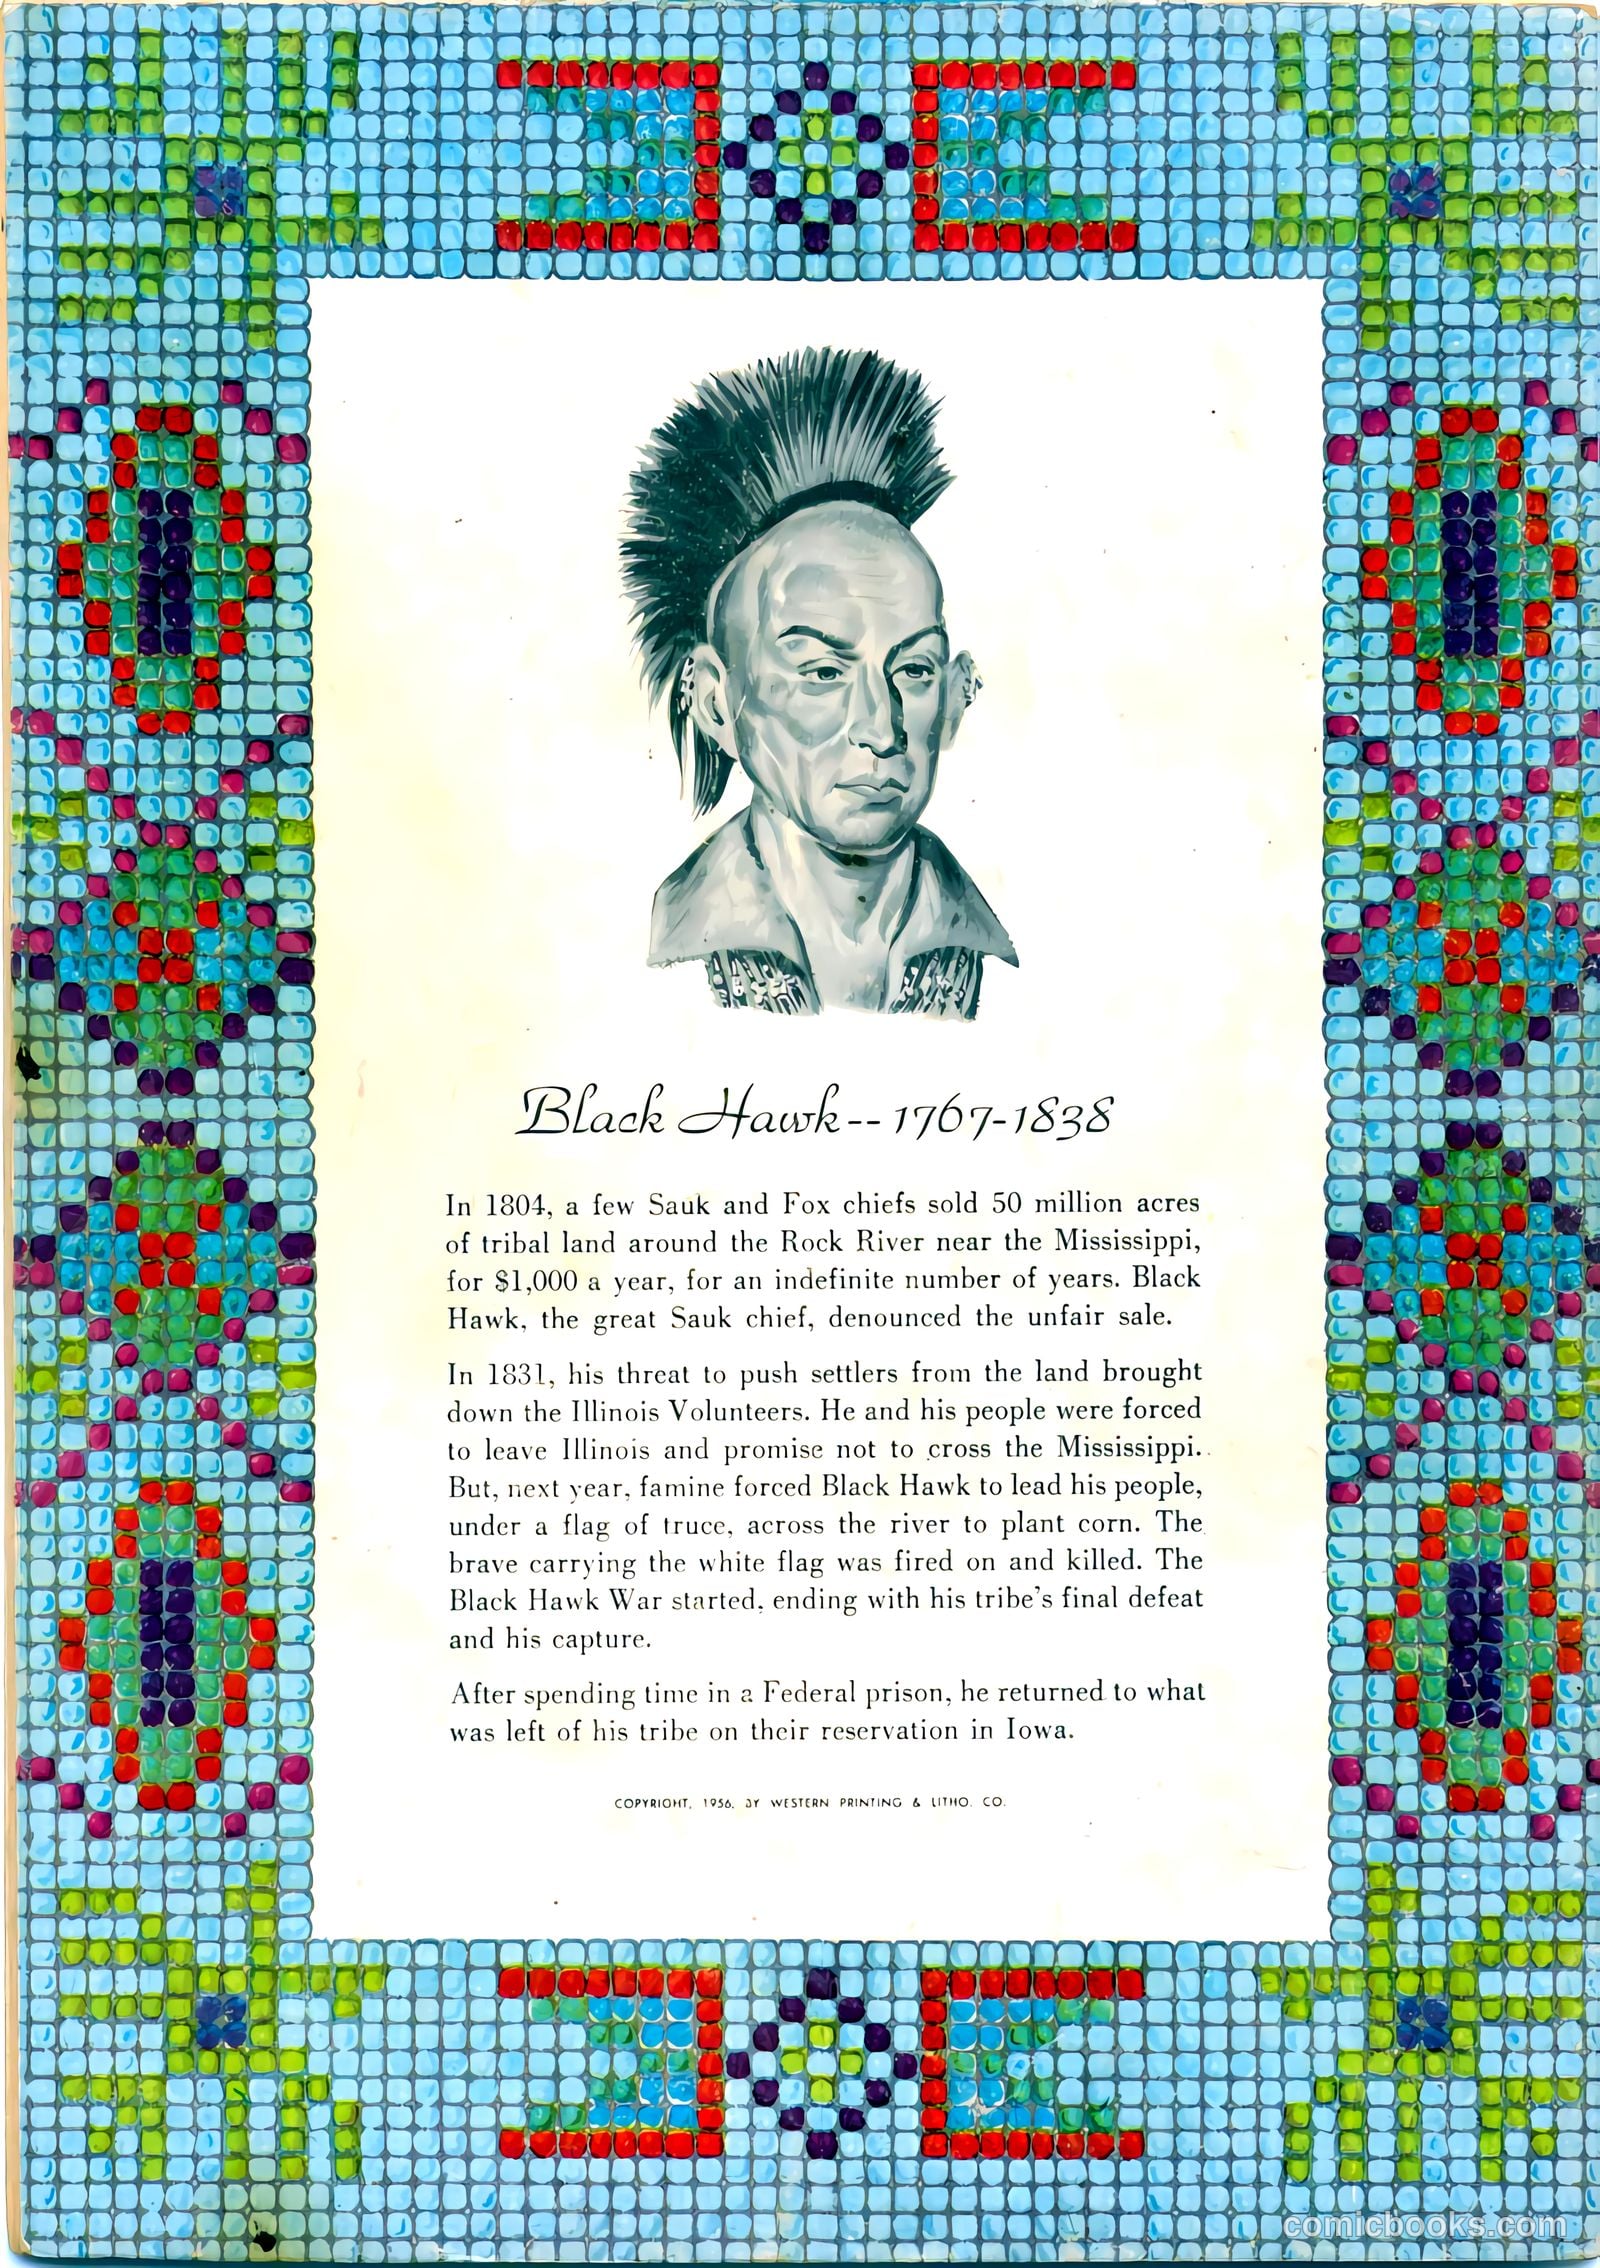 Black Hawk--1767-1838
In 1804, a few Sauk and Fox chiefs sold 50 million acres
of tribal land around the Rock River near the Mississippi,
for $1,000 a year, for an indefinite number of years. Black
Hawk, the great Sauk chief, denounced the unfair sale.
In 1831, his threat to push settlers from the land brought
down the Illinois Volunteers. He and his people were forced
to leave Illinois and promise not to cross the Mississippi.
But, next year, famine forced Black Hawk to lead his people,
under a flag of truce, across the river to plant corn. The
brave carrying the white flag was fired on and killed. The
Black Hawk War started, ending with his tribe's final defeat
and his capture.
After spending time in a Federal prison, he returned to what
was left of his tribe on their reservation in Iowa.
COPYRIGHT, 1956, BY WESTERN PRINTING & LITHO. CO.
comicbooks.com